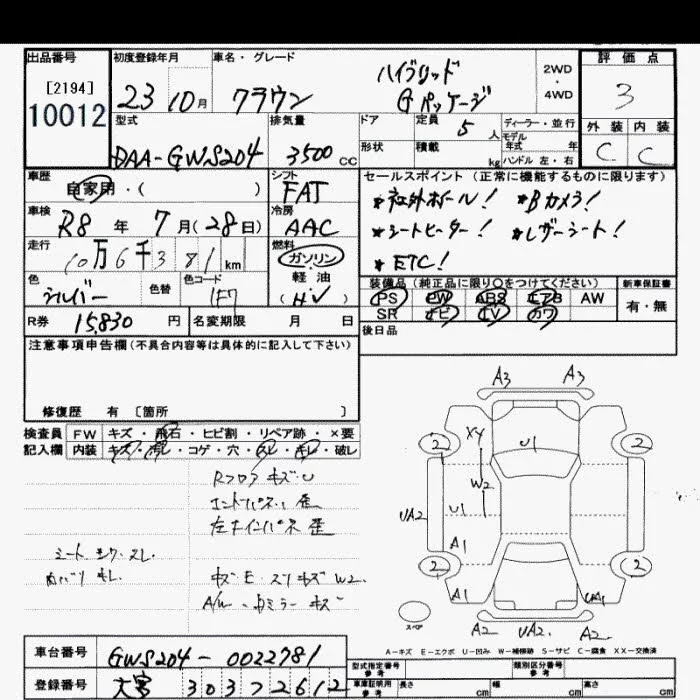 出品番号 初度登録年月 車名・グレード 評価点
[2194] 23 10月 クラウン ハイブリッド 2WD 3
10012 Gパッケージ 4WD
型式 排気量 ドア 定員 5 人 ディーラー・並行 外装 内装
DAA-GWS204 3500 CC 形状 積載 kg モデル年式 年 C C
ハンドル 左・右
車歴 自家用・( ) シフト FAT セールスポイント (正常に機能するものに限ります)
車検 R8 年 7 月(28日) 冷房 AAC *社外ホイール! *Bカメラ!
走行 10万6千381km 燃料 ガソリン・軽油 (HV) *シートヒーター! *レザーシート!
*ETC!
色 シルバー 色替 色コード 1F7 装備品 (純正品に限り〇をつけてください) 新車保証書
PS PW ABS エアB AW 有・無
R券 15,830 円 名変期限 月 日 SR ナビ TV カワ
注意事項申告欄 (不具合内容等は具体的に記入して下さい) 後日品
修復歴 有 [箇所 ]
検査員 FW キズ・飛石・ヒビ割・リペア跡・×要
記入欄 内装 キズ・汚レ・コゲ・穴・スレ・キレ・破レ
RフロアキズU
エンドパネル歪
左右インパネ歪
シート
キズE・スリキズW2
A/W・
A3 A3
2 XY U1 2
W2
UA2 U1
A1
2 2
A1 UA1
スペア
A2 UA2 A2
A-キズ E-エクボ U-凹み W-補修跡 S-サビ C-腐食 XX-交換済
車台番号 GWS204-0022781 型式指定番号 参考 類別区分番号 参考
登録番号 大宮 303 7 2612 車庫証明用 参考 長さ cm 幅 cm 高さ cm